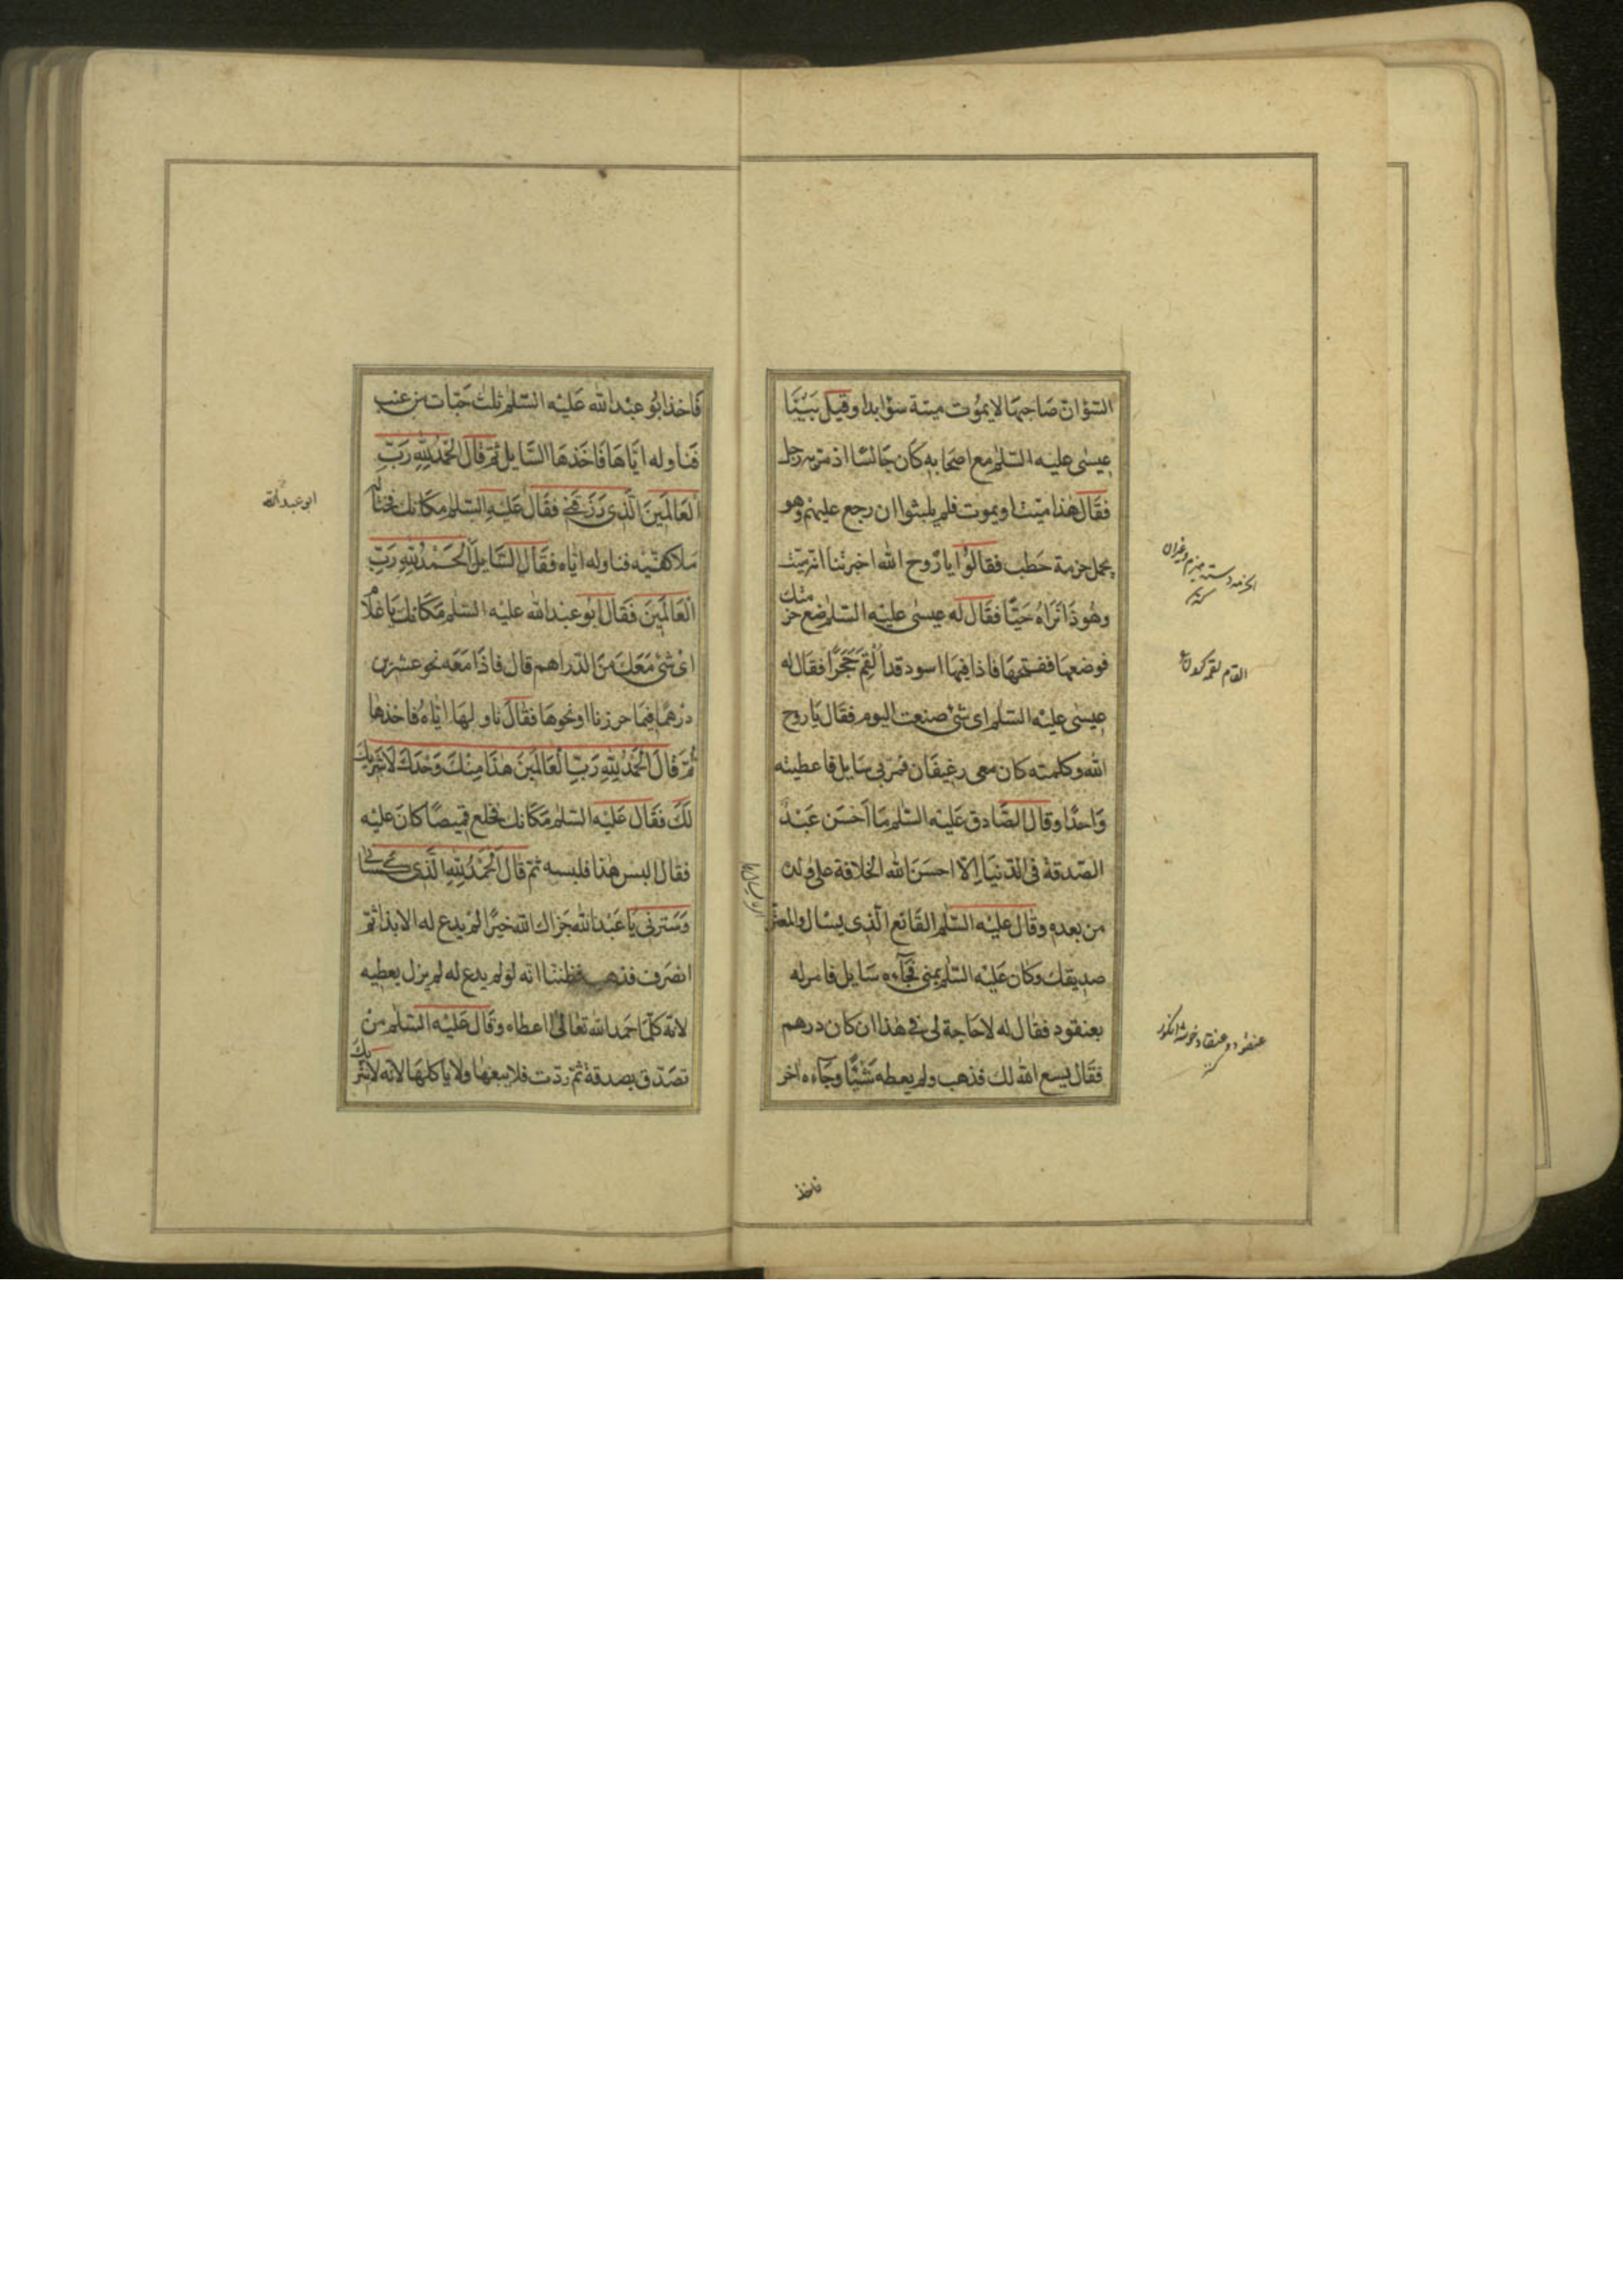 السوٓان صاحبها لا يموت ميتة سوٓ ابدا وقيل بَيْنَا
عيسى عليه السّلم مع اصحابه كان جالسًا اذ مرّ به رجل
فقال هذا ميّت او يموت فلم يلبثوا ان رجع عليهم وهو
يحمل حزمة حَطب فقالوا يا رُوح الله اخبرتنا انّه ميّت
وهُوَ ذا نَرَاهُ حَيًّا فقَال له عيسى عليه السّلم ضع حزمتك
فوضعها ففتحها فاذا فيها اسود قد اُلْقِمَ حَجَرًا فقال له
عيسى عليْه السّلم اى شئ صنعت اليوم فقال يا روح
الله وكلمته كان معى رغيفان فمرّ بى سايل فاعطيته
وَاحدًا وقال الصّادق عَليْه السّلم مَا اَحْسَن عَبْدٌ
الصّدقة فى الدّنيَا اِلّا احسَنَ الله الخلافة على ولده
من بعده وقال عليْه السّلم القانع الّذى يسال والمعترّ
صديقك وكان عَليْه السّلم بمنى فجَآءه سَايل فامر له
بعنقود فقال له لا حَاجة لى فى هٰذا ان كان درهم
فقَال يسع الله لك فذهب ولم يعطه شَيْئًا وجَآءه اخر
الحزمه دسته هيزم وغيران
القام لقمه كردن
عنقود و عنقاد خوشه انگور
فاخذ
فَاخذ ابُو عبْد الله عَليْه السّلم ثلث حَبّات من عنب
فناوله ايّاهَا فَاخَذهَا السَّايل ثمّ قال الْحَمْدُ لِلّهِ رَبِّ
الْعَالَمِينَ الَّذى رَزَقَنِى فقال عَليْهِ السّلم مكَانك فحثا له
مِلا كفّيْه فناوله ايّاه فقَال السَّايل الْحَمْدُ لِلّهِ رَبِّ
الْعَالَمِينَ فقَال ابُو عبْد الله عليْه السّلم مَكَانك يَا غلام
اىّ شئ مَعَكَ منَ الدّراهم قال فاذَا مَعَه نحو عشرين
درهمًا فيمَا حرزنا او نحوها فقال ناولها ايّاهُ فاخذها
ثمّ قال الْحَمْدُ لِلّهِ رَبِّ الْعَالَمِينَ هٰذَا مِنْكَ وَحْدَكَ لَا شَرِيكَ
لَكَ فقَال عَليْه السّلم مَكَانك فخلع قميصًا كان عليْه
فقال البس هٰذا فلبسه ثمّ قال الْحَمْدُ لِلّهِ الَّذى كسانى
وَسَتَرنى يَا عَبْد الله جَزاك الله خيرًا لم يدع له الا بذا ثمّ
انصَرف فذهب فظننّا انّه لو لم يدع له لم يزل يعطيه
لانّه كلّمَا حَمد الله تعَالىٰ اعطاه وَقَال عَليْه السّلم مَنْ
تصَدّق بصدقة ثمّ ردّت فلا يبعْها ولا ياكلهَا لانّه لا شريك
ابو عبد الله